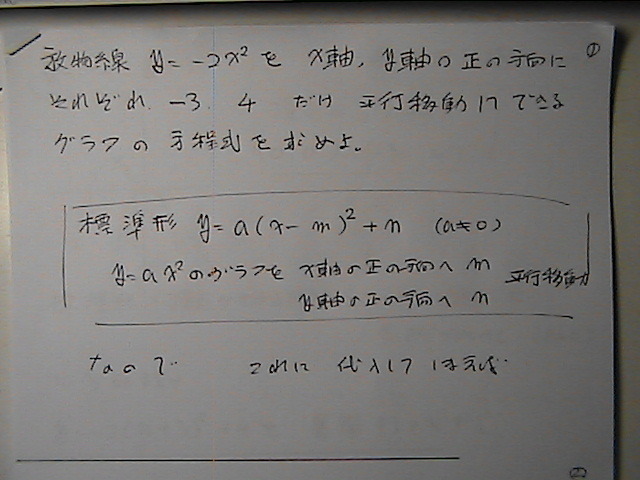 放物線 y=-2x² を x軸, y軸の正の方向に ①
それぞれ -3, 4 だけ 平行移動してできる
グラフの方程式を求めよ。
標準形 y=a(x-m)²+n (a≠0)
y=ax²のグラフを x軸の正の方向へ m 平行移動
y軸の正の方向へ n
なので これに 代入して
②